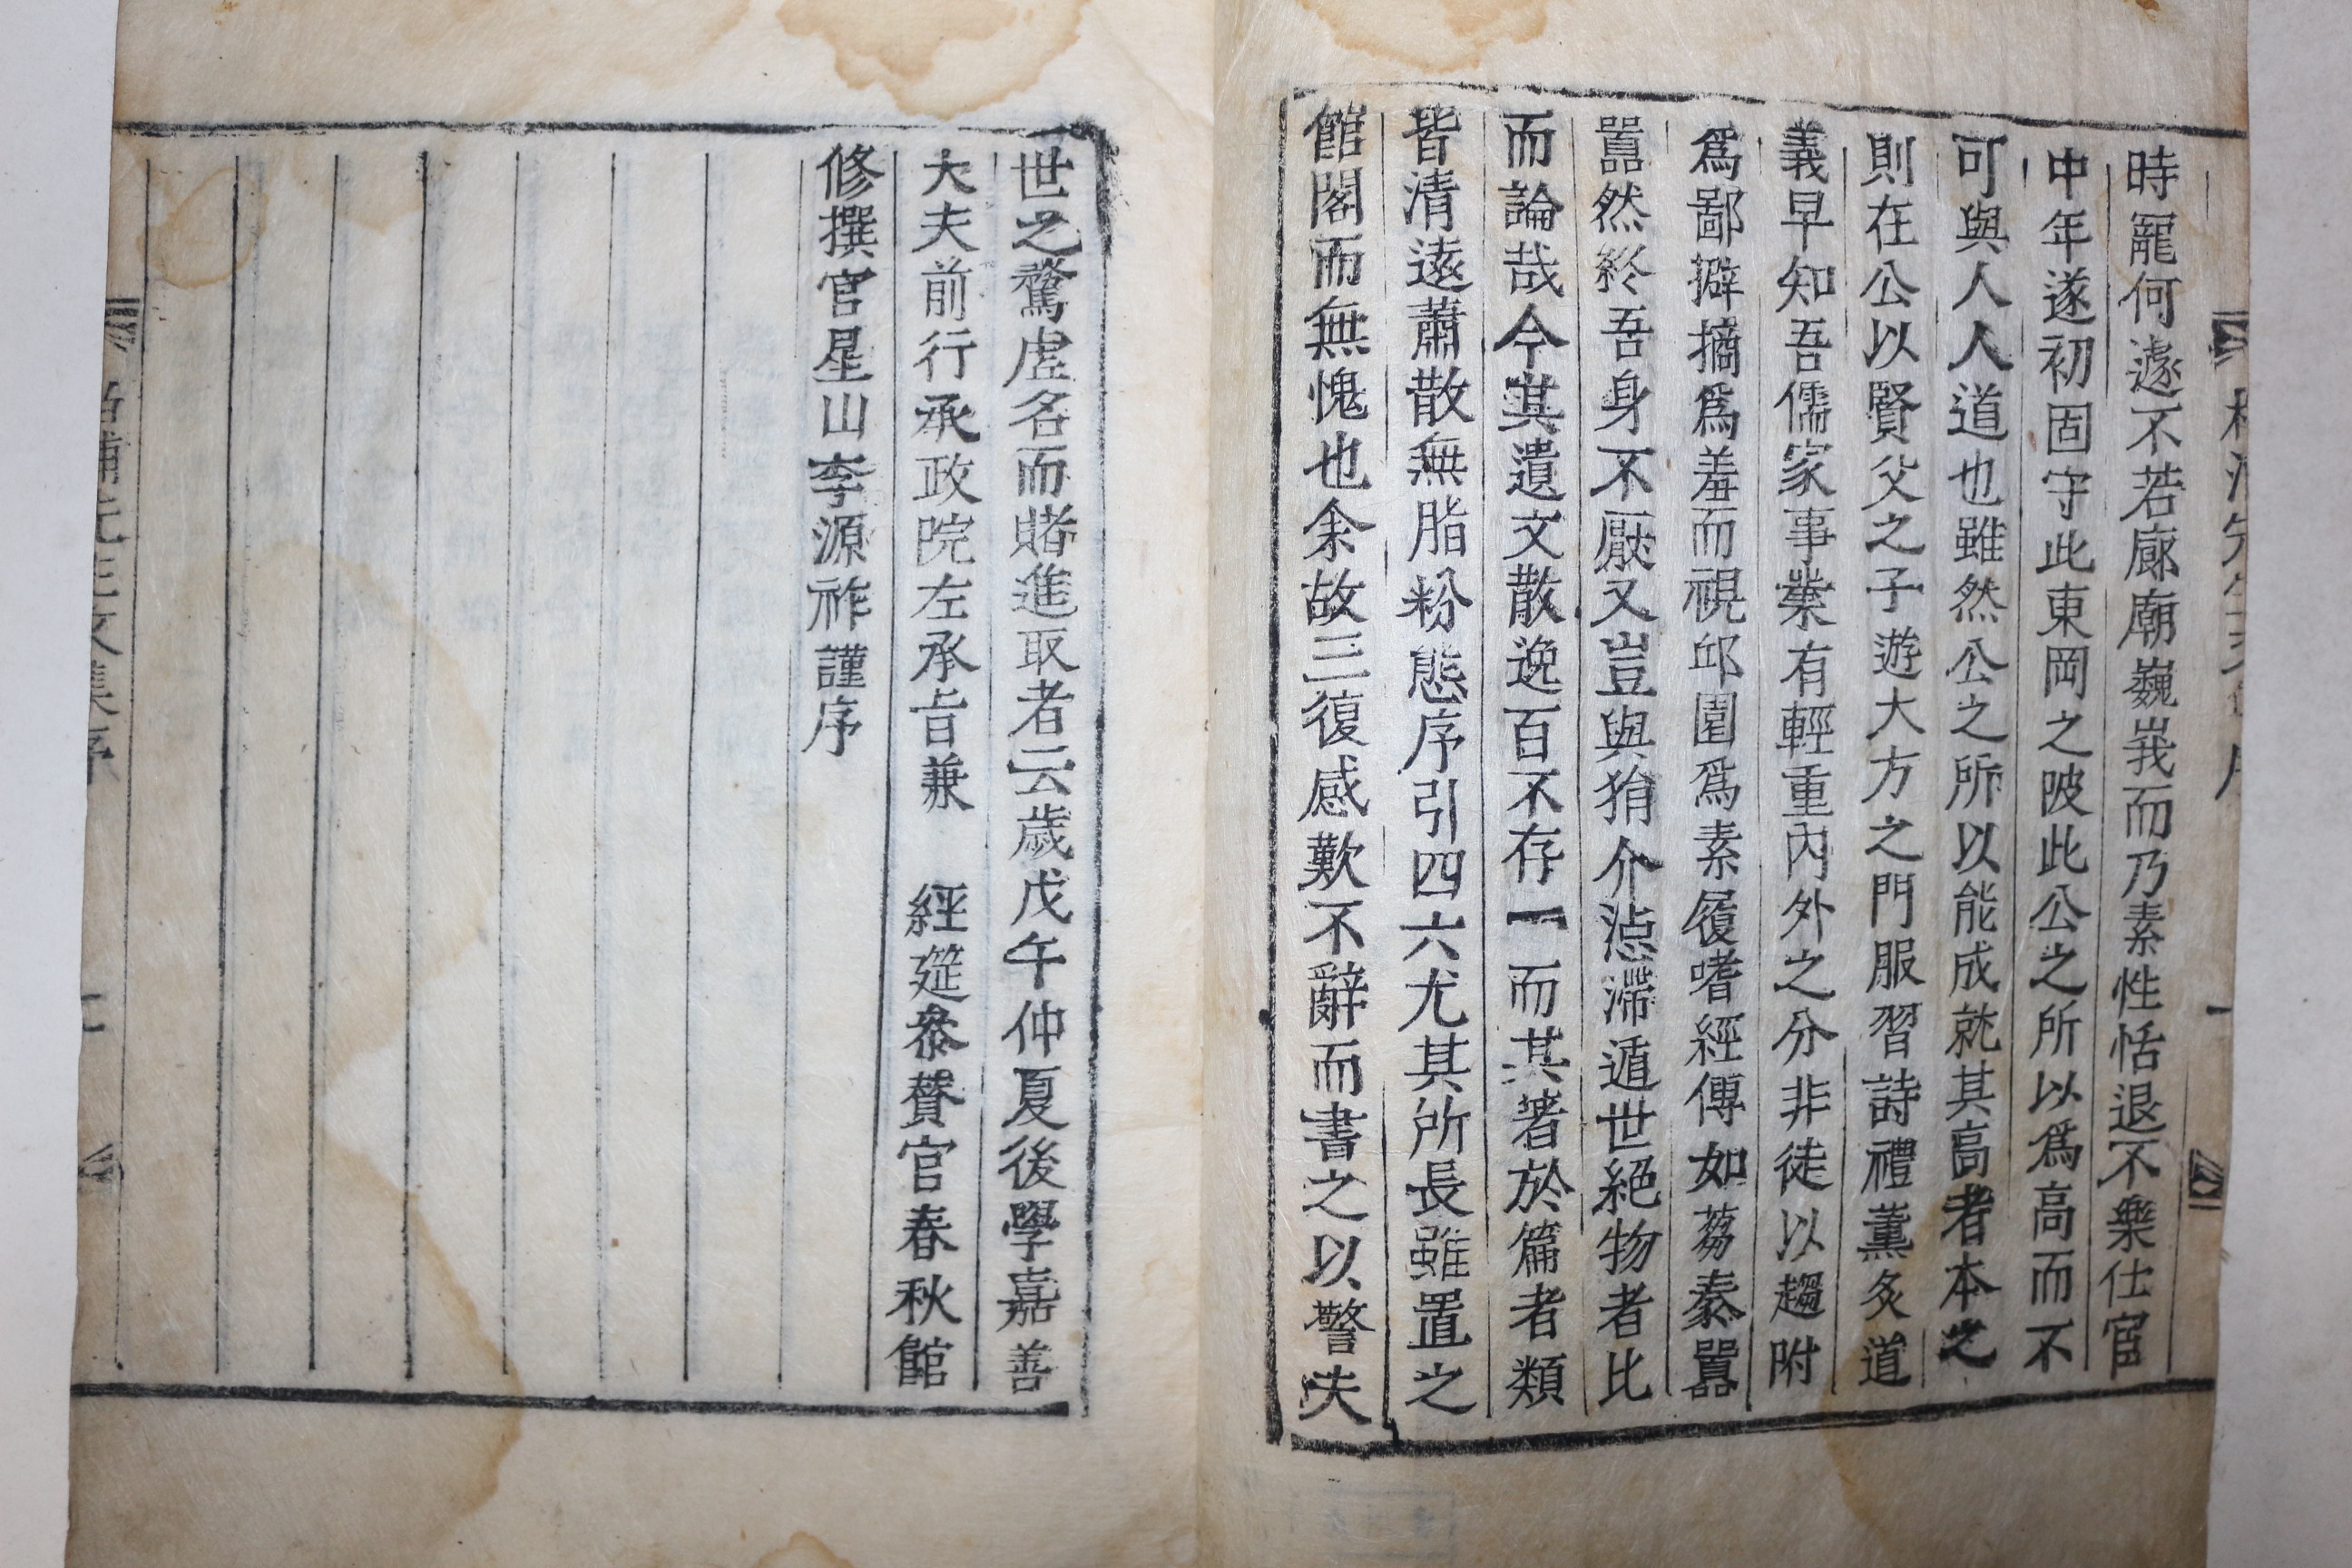 時寵何遽不若廊廟巍峩而乃素性恬退不樂仕宦
中年遂初固守此東岡之陂此公之所以爲高而不
可與人人道也雖然公之所以能成就其高者本之
則在公以賢父之子遊大方之門服習詩禮薰炙道
義早知吾儒家事業有輕重內外之分非徒以趨附
爲鄙擗摘爲羞而視邱園爲素履嗜經傳如芻豢囂
囂然終吾身不厭又豈與狷介惉滯遁世絕物者比
而論哉今其遺文散逸百不存一而其著於篇者類
皆清遠蕭散無脂粉態序引四六尤其所長雖置之
館閣而無愧也余故三復感歎不辭而書之以警夫
世之騖虛名而賭進取者云歲戊午仲夏後學嘉善
大夫前行承政院左承旨兼 經筵叅贊官春秋館
修撰官星山李源祚謹序
先生文集序